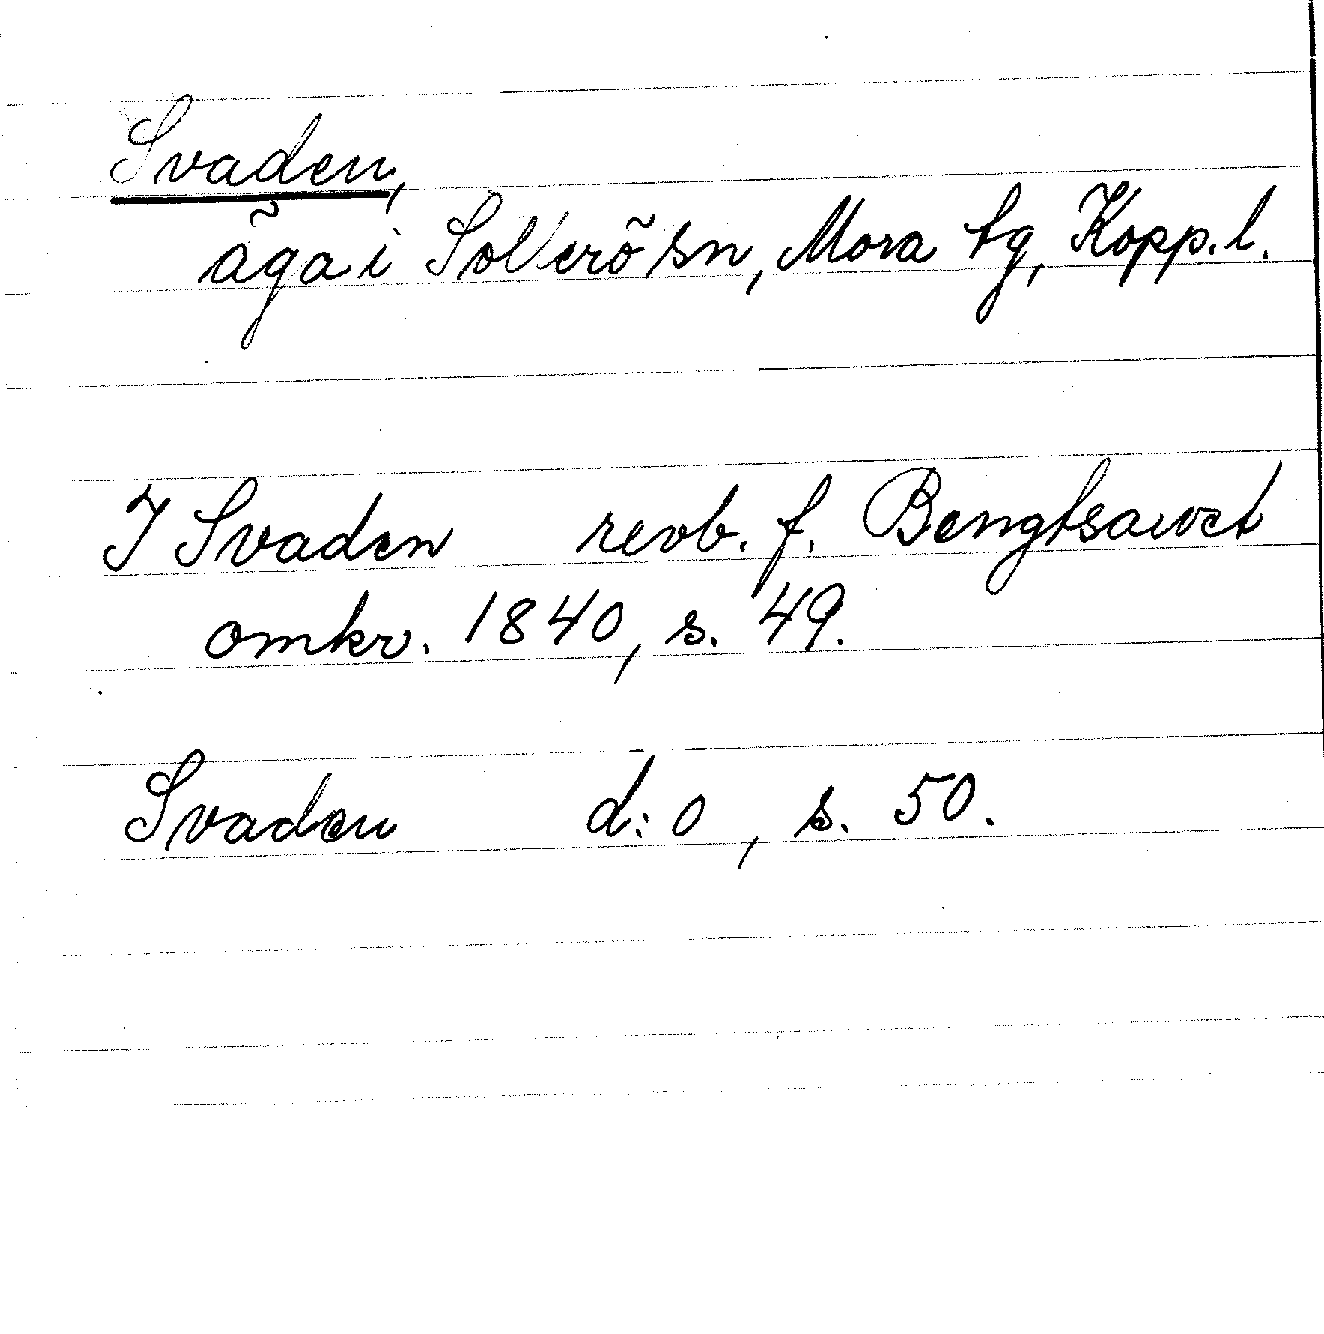 Svaden,
äga i Sollerö sn, Mora tg, Kopp. l.
I Svaden revb. f. Bengtsarvet
omkr. 1840, s. 49.
Svaden d:o, s. 50.